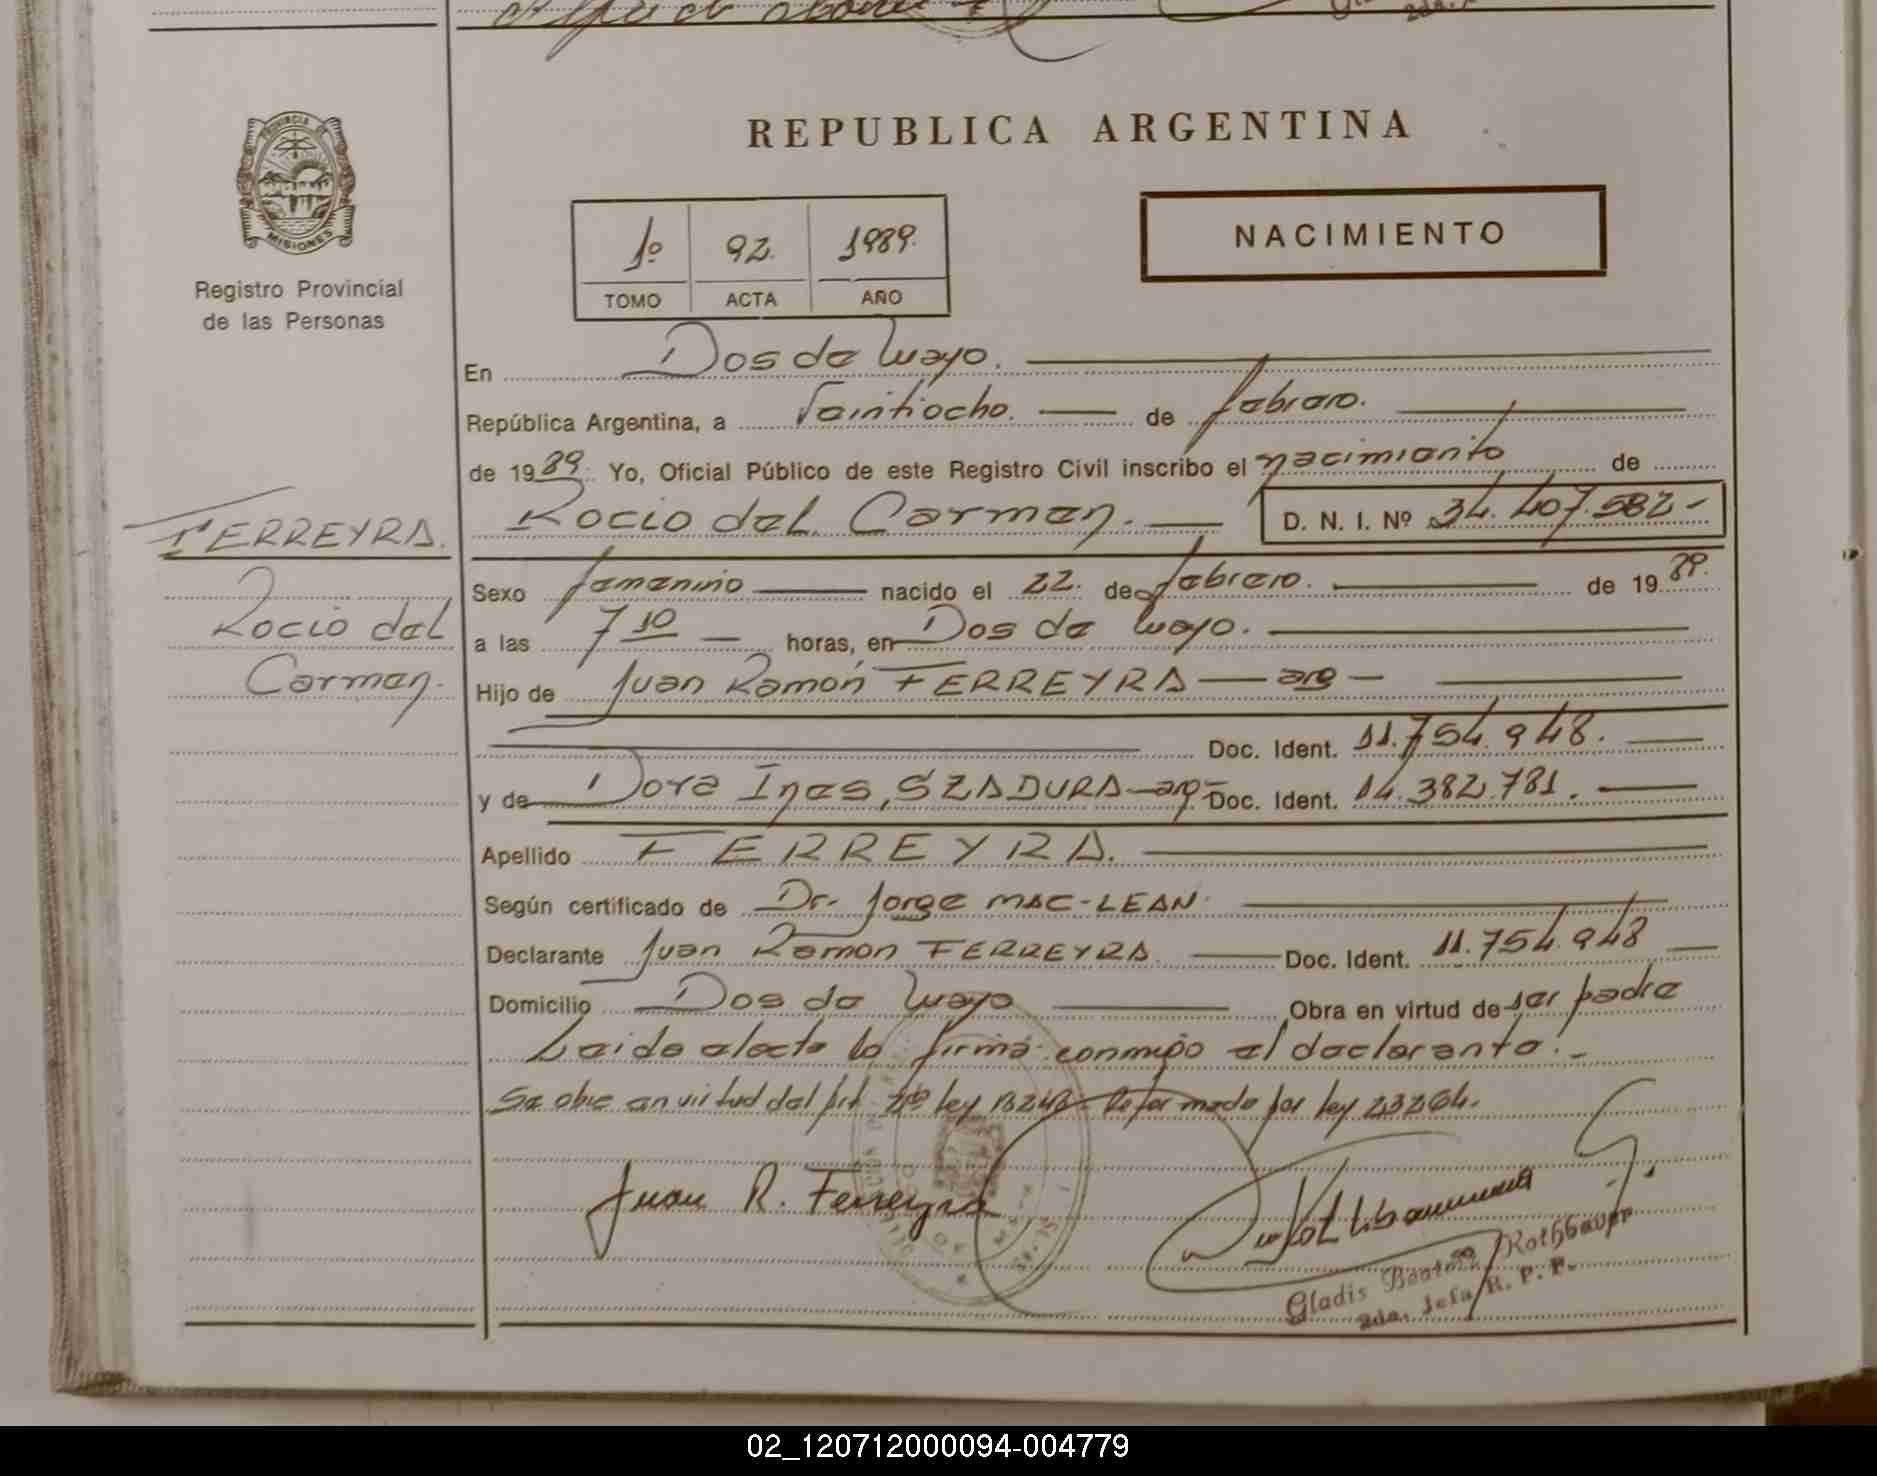 PROVINCIA DE
MISIONES
Registro Provincial
de las Personas
REPUBLICA ARGENTINA
1º 92. 1989.
TOMO ACTA AÑO
NACIMIENTO
En Dos de Mayo.
República Argentina, a Veintiocho. de febrero.
de 1989. Yo, Oficial Público de este Registro Civil inscribo el nacimiento de
Rocio del Carmen. D. N. I. Nº 34.407.582-
FERREYRA.
Rocio del
Carmen.
Sexo femenino nacido el 22. de febrero. de 1989.
a las 7 10 horas, en Dos de Mayo.
Hijo de Juan Ramón FERREYRA arg
Doc. Ident. 11.754.948.
y de Dora Ines, SZADURA arg. Doc. Ident. 14.382.781.
Apellido FERREYRA.
Según certificado de Dr. Jorge MAC-LEAN.
Declarante Juan Ramon FERREYRA Doc. Ident. 11.754.948
Domicilio Dos de Mayo Obra en virtud de ser padre
Leida el acta la firma conmigo el declarante.-
Se obre en virtud del Art ley Reformado por ley 23264.
Juan R. Ferreyra
Gladis Beatriz Rothbauer
2da. Jefa R. P. P.
02_120712000094-004779